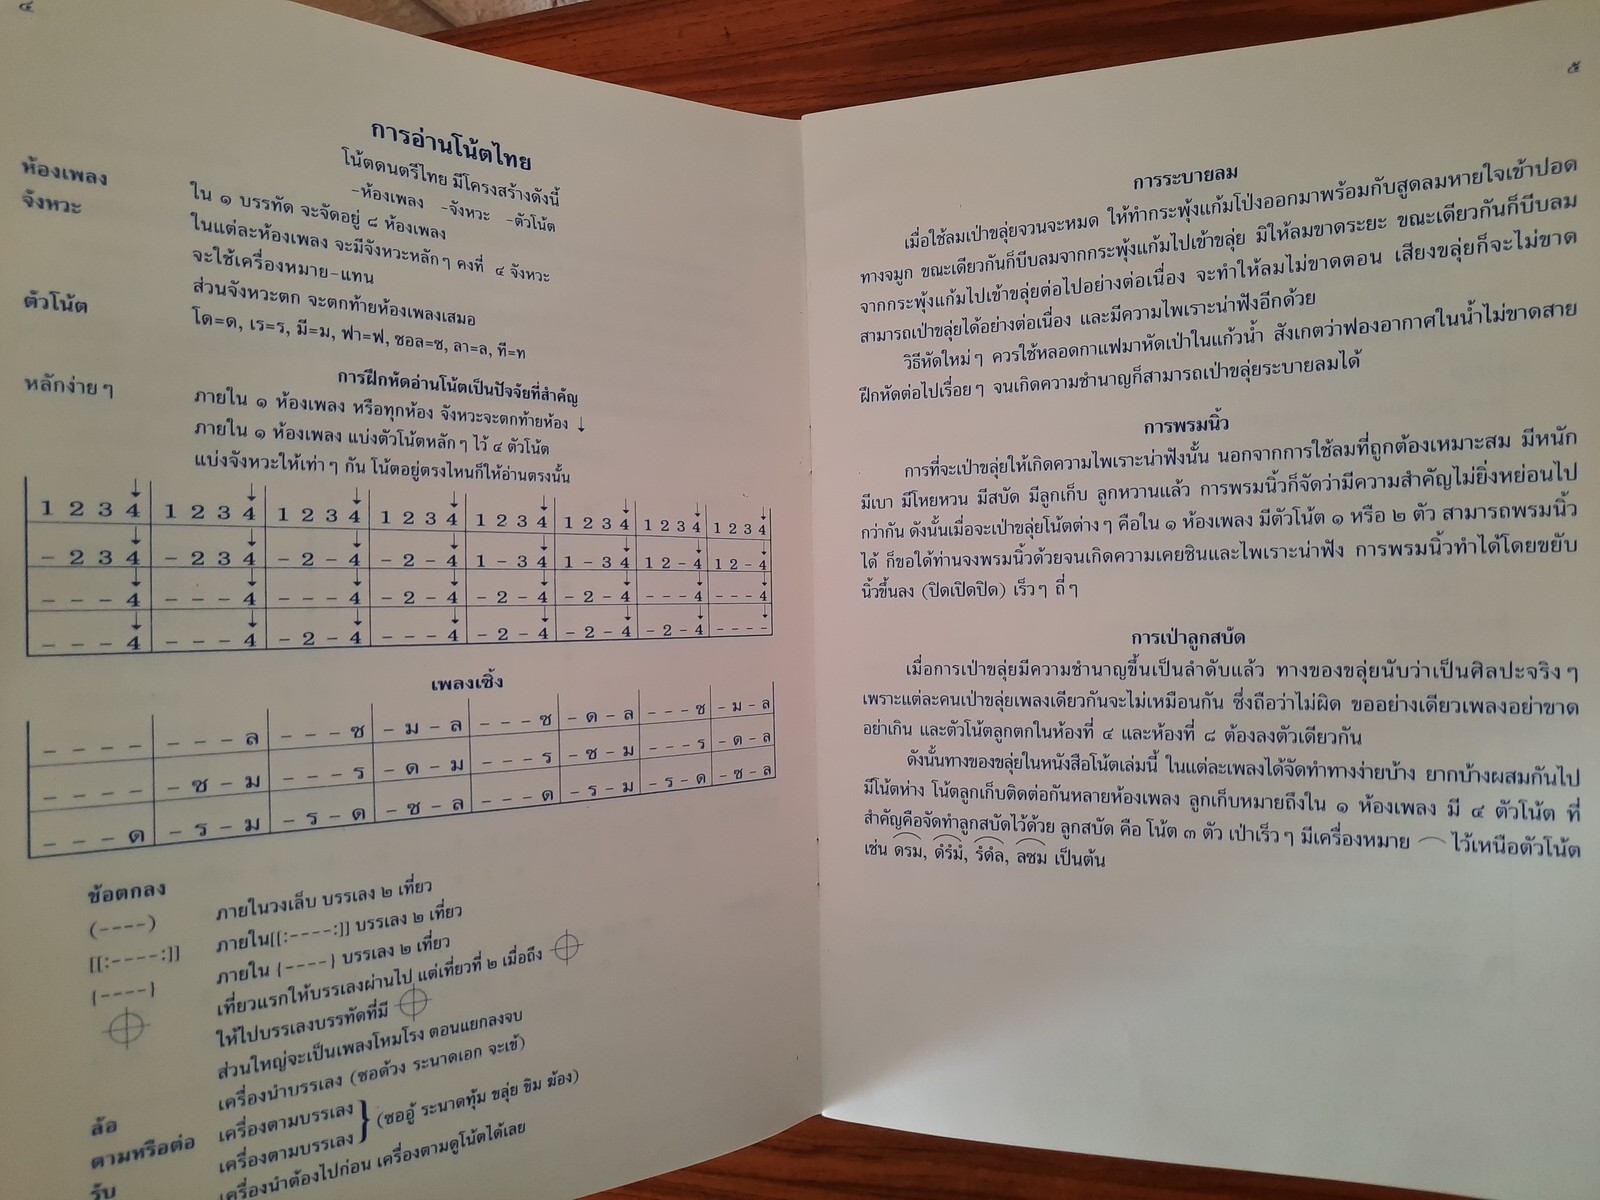 ๔
การอ่านโน้ตไทย
โน้ตดนตรีไทย มีโครงสร้างดังนี้
-ห้องเพลง -จังหวะ -ตัวโน้ต
ห้องเพลง ใน ๑ บรรทัด จะจัดอยู่ ๘ ห้องเพลง
จังหวะ ในแต่ละห้องเพลง จะมีจังหวะหลักๆ คงที่ ๔ จังหวะ
จะใช้เครื่องหมาย-แทน
ส่วนจังหวะตก จะตกท้ายห้องเพลงเสมอ
ตัวโน้ต โด=ด, เร=ร, มี=ม, ฟา=ฟ, ซอล=ซ, ลา=ล, ที=ท
การฝึกหัดอ่านโน้ตเป็นปัจจัยที่สำคัญ
หลักง่ายๆ ภายใน ๑ ห้องเพลง หรือทุกห้อง จังหวะจะตกท้ายห้อง ↓
ภายใน ๑ ห้องเพลง แบ่งตัวโน้ตหลักๆ ไว้ ๔ ตัวโน้ต
แบ่งจังหวะให้เท่าๆ กัน โน้ตอยู่ตรงไหนก็ให้อ่านตรงนั้น
1 2 3 4 1 2 3 4 1 2 3 4 1 2 3 4 1 2 3 4 1 2 3 4 1 2 3 4 1 2 3 4
- 2 3 4 - 2 3 4 - 2 - 4 - 2 - 4 1 - 3 4 1 - 3 4 1 2 - 4 1 2 - 4
- - - 4 - - - 4 - - - 4 - 2 - 4 - 2 - 4 - 2 - 4 - - - 4 - - - 4
- - - 4 - - - 4 - 2 - 4 - - - 4 - 2 - 4 - 2 - 4 - 2 - 4 - - - -
เพลงเซิ้ง
- - - - - - - ล - - - ซ - ม - ล - - - ซ - ด - ล - - - ซ - ม - ล
- - - - - ซ - ม - - - ร - ด - ม - - - ร - ซ - ม - - - ร - ด - ล
- - - ด - ร - ม - ร - ด - ซ - ล - - - ด - ร - ม - ร - ด - ซ - ล
ข้อตกลง
(----) ภายในวงเล็บ บรรเลง ๒ เที่ยว
[[:----:]] ภายใน[[:----:]] บรรเลง ๒ เที่ยว
{----} ภายใน {----} บรรเลง ๒ เที่ยว
เที่ยวแรกให้บรรเลงผ่านไป แต่เที่ยวที่ ๒ เมื่อถึง
ให้ไปบรรเลงบรรทัดที่มี
ส่วนใหญ่จะเป็นเพลงโหมโรง ตอนแยกลงจบ
ล้อ เครื่องนำบรรเลง (ซอด้วง ระนาดเอก จะเข้)
ตามหรือต่อ เครื่องตามบรรเลง } (ซออู้ ระนาดทุ้ม ขลุ่ย ขิม ฆ้อง)
รับ เครื่องตามบรรเลง
เครื่องนำต้องไปก่อน เครื่องตามดูโน้ตได้เลย
๕
การระบายลม
เมื่อใช้ลมเป่าขลุ่ยจวนจะหมด ให้ทำกระพุ้งแก้มโป่งออกมาพร้อมกับสูดลมหายใจเข้าปอด
ทางจมูก ขณะเดียวกันก็บีบลมจากกระพุ้งแก้มไปเข้าขลุ่ย มิให้ลมขาดระยะ ขณะเดียวกันก็บีบลม
จากกระพุ้งแก้มไปเข้าขลุ่ยต่อไปอย่างต่อเนื่อง จะทำให้ลมไม่ขาดตอน เสียงขลุ่ยก็จะไม่ขาด
สามารถเป่าขลุ่ยได้อย่างต่อเนื่อง และมีความไพเราะน่าฟังอีกด้วย
วิธีหัดใหม่ๆ ควรใช้หลอดกาแฟมาหัดเป่าในแก้วน้ำ สังเกตว่าฟองอากาศในน้ำไม่ขาดสาย
ฝึกหัดต่อไปเรื่อยๆ จนเกิดความชำนาญก็สามารถเป่าขลุ่ยระบายลมได้
การพรมนิ้ว
การที่จะเป่าขลุ่ยให้เกิดความไพเราะน่าฟังนั้น นอกจากการใช้ลมที่ถูกต้องเหมาะสม มีหนัก
มีเบา มีโหยหวน มีสบัด มีลูกเก็บ ลูกหวานแล้ว การพรมนิ้วก็จัดว่ามีความสำคัญไม่ยิ่งหย่อนไป
กว่ากัน ดังนั้นเมื่อจะเป่าขลุ่ยโน้ตต่างๆ คือใน ๑ ห้องเพลง มีตัวโน้ต ๑ หรือ ๒ ตัว สามารถพรมนิ้ว
ได้ ก็ขอได้ท่านจงพรมนิ้วด้วยจนเกิดความเคยชินและไพเราะน่าฟัง การพรมนิ้วทำได้โดยขยับ
นิ้วขึ้นลง (ปิดเปิดปิด) เร็วๆ ถี่ๆ
การเป่าลูกสบัด
เมื่อการเป่าขลุ่ยมีความชำนาญขึ้นเป็นลำดับแล้ว ทางของขลุ่ยนับว่าเป็นศิลปะจริงๆ
เพราะแต่ละคนเป่าขลุ่ยเพลงเดียวกันจะไม่เหมือนกัน ซึ่งถือว่าไม่ผิด ขออย่างเดียวเพลงอย่าขาด
อย่าเกิน และตัวโน้ตลูกตกในห้องที่ ๔ และห้องที่ ๘ ต้องลงตัวเดียวกัน
ดังนั้นทางของขลุ่ยในหนังสือโน้ตเล่มนี้ ในแต่ละเพลงได้จัดทำทางง่ายบ้าง ยากบ้างผสมกันไป
มีโน้ตห่าง โน้ตลูกเก็บติดต่อกันหลายห้องเพลง ลูกเก็บหมายถึงใน ๑ ห้องเพลง มี ๔ ตัวโน้ต ที่
สำคัญคือจัดทำลูกสบัดไว้ด้วย ลูกสบัด คือ โน้ต ๓ ตัว เป่าเร็วๆ มีเครื่องหมาย ⌒ ไว้เหนือตัวโน้ต
เช่น ดรม, ดํรํมํ, รํดํล, ลซม เป็นต้น